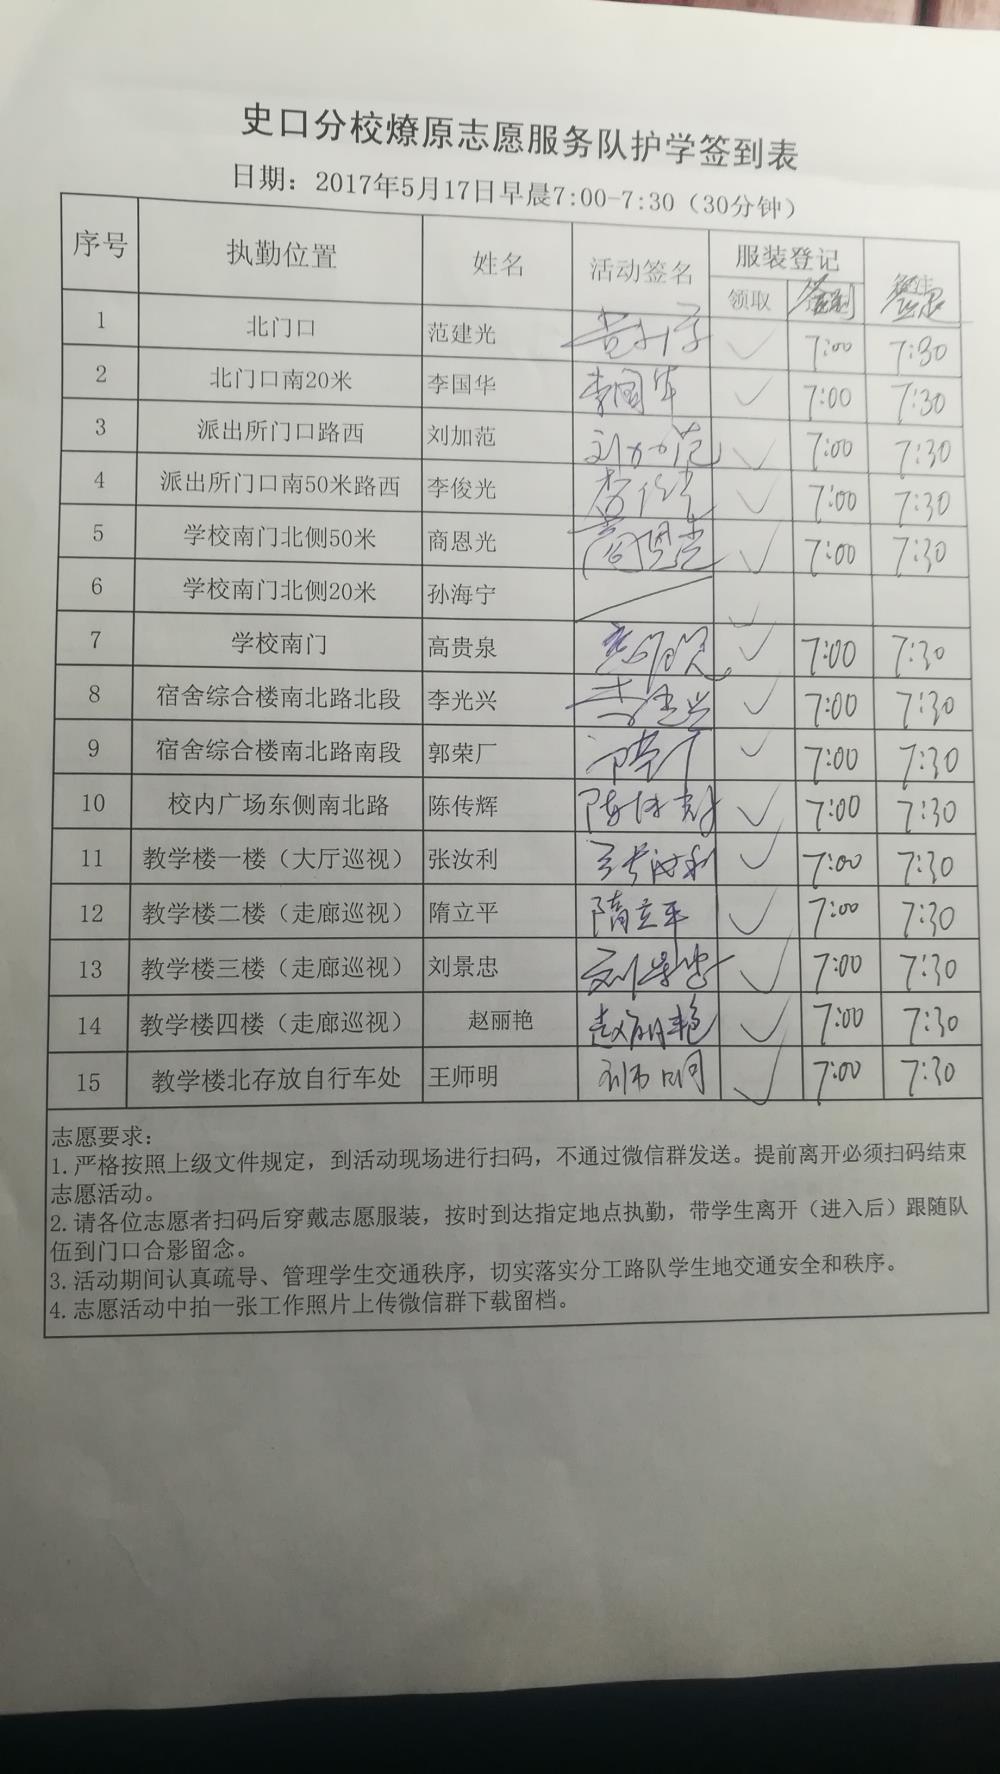 史口分校燎原志愿服务队护学签到表
日期：2017年5月17日早晨7:00-7:30（30分钟）
序号 执勤位置 姓名 活动签名 服装登记
领取 签到
1 北门口 范建光 7:00 7:30
2 北门口南20米 李国华 李国华 7:00 7:30
3 派出所门口路西 刘加范 刘加范 7:00 7:30
4 派出所门口南50米路西 李俊光 李俊光 7:00 7:30
5 学校南门北侧50米 商恩光 商恩光 7:00 7:30
6 学校南门北侧20米 孙海宁
7 学校南门 高贵泉 7:00 7:30
8 宿舍综合楼南北路北段 李光兴 7:00 7:30
9 宿舍综合楼南北路南段 郭荣厂 7:00 7:30
10 校内广场东侧南北路 陈传辉 陈传辉 7:00 7:30
11 教学楼一楼（大厅巡视） 张汝利 张汝利 7:00 7:30
12 教学楼二楼（走廊巡视） 隋立平 隋立平 7:00 7:30
13 教学楼三楼（走廊巡视） 刘景忠 刘景忠 7:00 7:30
14 教学楼四楼（走廊巡视） 赵丽艳 赵丽艳 7:00 7:30
15 教学楼北存放自行车处 王师明 7:00 7:30
志愿要求：
1.严格按照上级文件规定，到活动现场进行扫码，不通过微信群发送。提前离开必须扫码结束
志愿活动。
2.请各位志愿者扫码后穿戴志愿服装，按时到达指定地点执勤，带学生离开（进入后）跟随队
伍到门口合影留念。
3.活动期间认真疏导、管理学生交通秩序，切实落实分工路队学生地交通安全和秩序。
4.志愿活动中拍一张工作照片上传微信群下载留档。